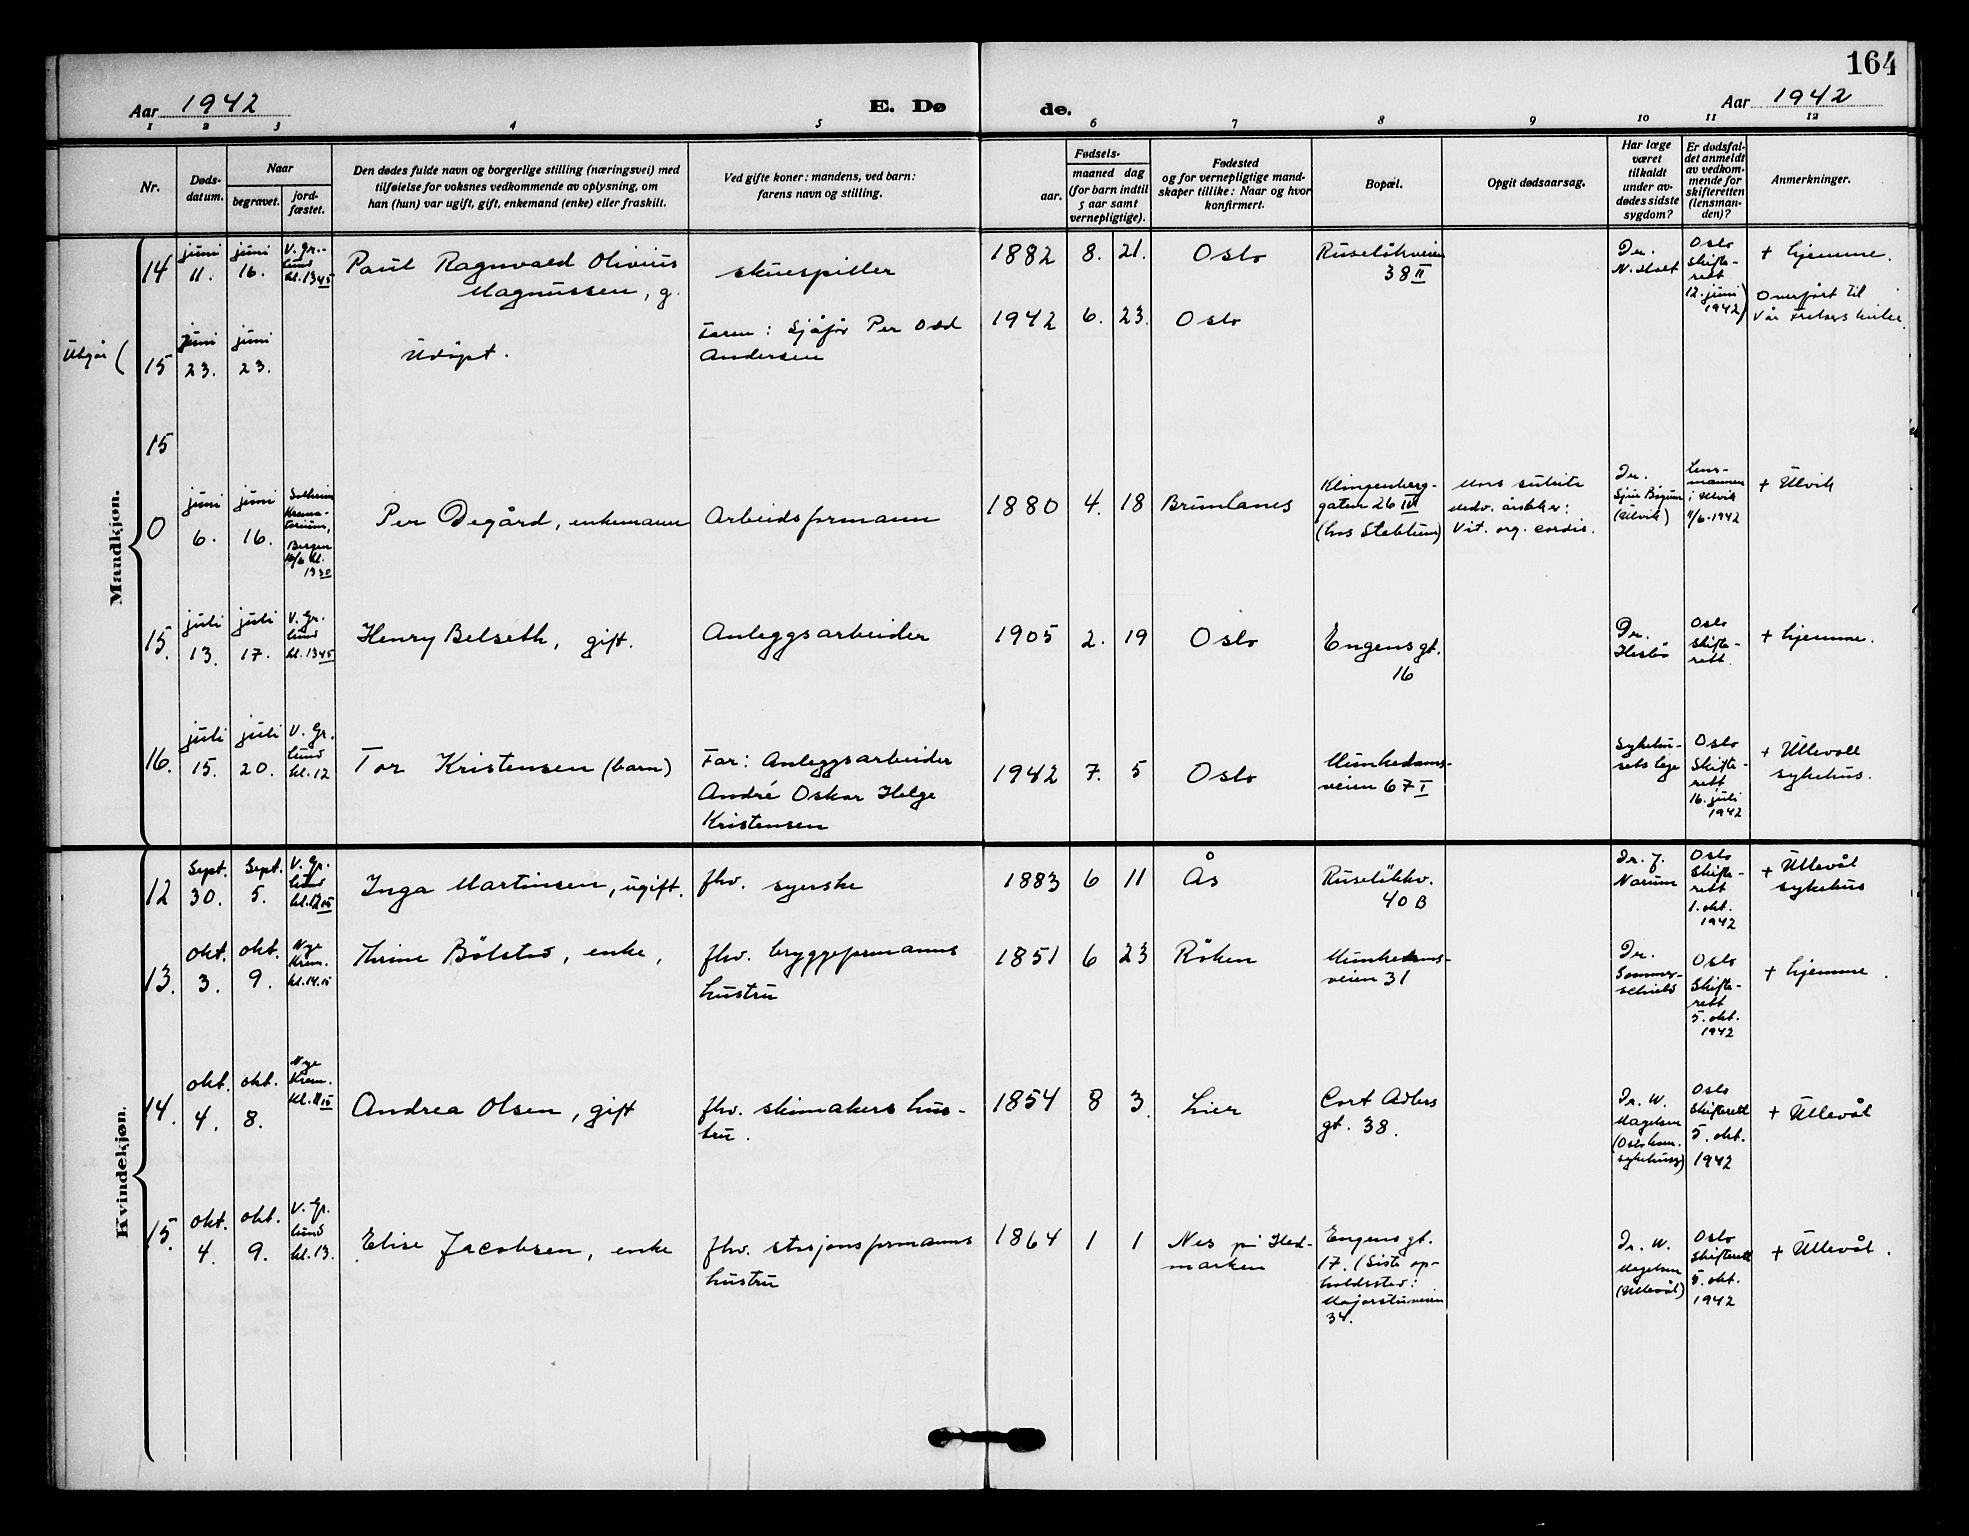 164
Aar 1942
E. Dø
de.
Aar 1942
1 2 3 4 5 6 7 8 9 10 11 12
Nr.
Døds-
datum.
Naar
begravet.
jord-
fæstet.
Den dødes fulde navn og borgerlige stilling (næringsvei) med
tilføielse for voksnes vedkommende av oplysning, om
han (hun) var ugift, gift, enkemand (enke) eller fraskilt.
Ved gifte koner: mandens, ved barn:
farens navn og stilling.
Fødsels-
aar.
maaned dag
(for barn indtil
5 aar samt
vernepligtige).
Fødested
og for vernepligtige mand-
skaper tillike: Naar og hvor
konfirmert.
Bopæl.
Opgit dødsaarsag.
Har læge
været
tilkaldt
under av-
dødes sidste
sygdom?
Er dødsfal-
det anmeldt
av vedkom-
mende for
skifteretten
(lensman-
den)?
Anmerkninger.
Mandkjøn.
14
juni
11.
juni
16.
V. Gr.-
lund
kl. 13 45
Paul Ragnvald Olivius
Magnussen, g.
skuespiller
1882 8. 21. Oslo
Ruseløkveien
38 II
Dr.
Oslo
Skifte-
rett
12. juni
1942)
+ hjemme.
Overført til
Vår Frelsers
Utgår (
15
juni
23.
juni
23.
Udøpt.
Faren: Sjåfør Per Odd
Andersen
1942 6. 23. Oslo
15
0
juni
6.
juni
16.
Solheim
Krema-
torium,
Bergen
16/6 kl.
13 30
Per Øegård, enkemann
Arbeidsformann
1880 4. 18 Brunlanes
Klingenberg-
gaten 26 IV
(hos Stokklum)
Mors subite
Vit. org. cordis.
Dr.
(Ulvik)
Lens-
mannen
i Ulvik
11/6-1942
+ Ulvik
15.
juli
13.
juli
17.
V. Gr.
lund
kl. 13 45
Henry Belseth, gift.
Anleggsarbeider
1905 2. 19 Oslo
Engens gt.
16
Dr.
Oslo
Skifte-
rett.
+ hjemme.
16.
juli
15.
juli
20.
V. Gr.
lund
kl. 12
Tor Kristensen (barn)
Far: Anleggsarbeider
André Oskar Helge
Kristensen
1942 7. 5 Oslo
Munkedams-
veien 67 I
Sykehu-
sets lege
Oslo
Skifte-
rett
16. juli
1942
+ Ullevoll
sykehus.
Kvindekjøn.
12
Sept.
30.
Sept.
5.
V. Gr.
lund
kl. 12 15
Inga Martinsen, ugift.
fhv. syerske
1883 6 11 Ås
Ruseløkkv.
40 B
Dr. J.
Narum
Oslo
Skifte-
rett
1. okt.
1942
+ Ullevål
sykehus
13.
okt.
3.
okt.
9.
Nye
Krem.
kl. 14.15
Trine Bølstad, enke,
fhv. bryggeformanns
hustru
1851 6 23 Røken
Munkedams-
veien 31
Dr.
Sommer-
schield
Oslo
Skifte-
rett
5. okt.
1942
+ hjemme.
14.
okt.
4.
okt.
8.
Nye
Krem.
kl. 11 15
Andrea Olsen, gift
fhv. skimakers hus-
tru.
1854 8 3. Lier
Cort Adlers
gt. 38.
Dr. W.
Magelsen
(Oslo kom.
sykehus)
Oslo
Skifterett
5. okt.
1942
+ Ullevål
15.
okt.
4.
okt.
9.
V. Gr.
lund
kl. 13.
Elise Jacobsen, enke
fhv. stasjonsformanns
hustru
1864 1 1 Nes på Hed-
marken
Engens gt.
17. (Siste op-
holdssted:
Majorstuveien
34.
Dr. W.
Magelsen
(Ullevål)
Oslo
Skifterett
5. okt.
1942
+ Ullevål.